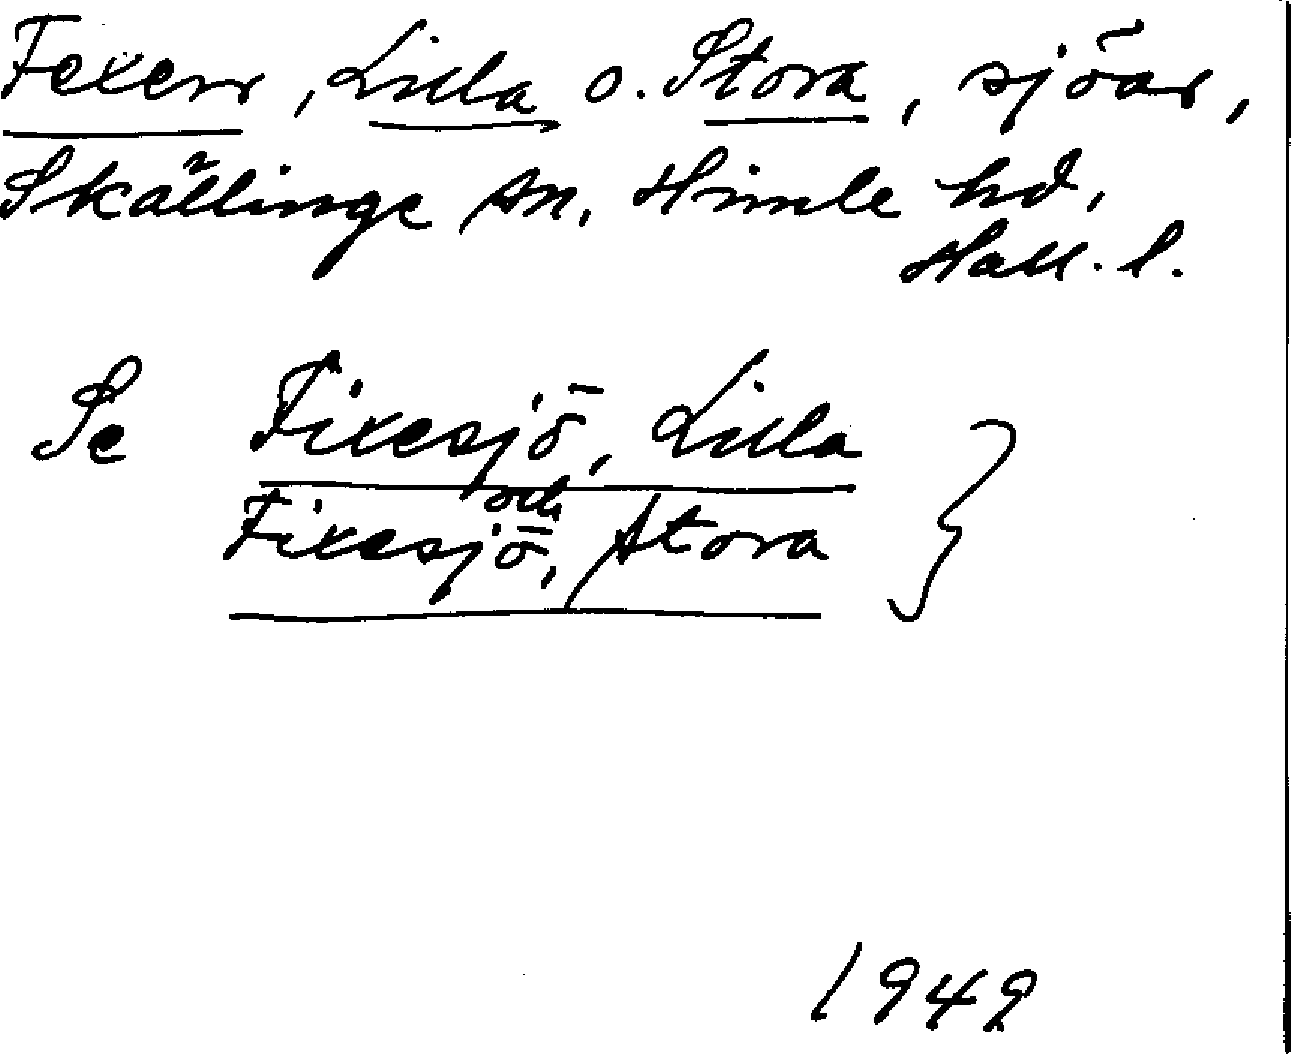 Fexen, Lilla o. Stora, sjöar,
Skällinge sn. Himle hd,
Hall. l.
Se Fixesjö, Lilla
och
Fixesjö, Stora
1949